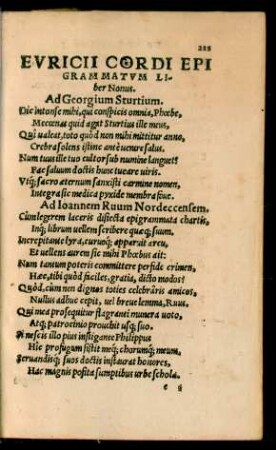 EVRICII CORDI EPI
GRAMMATVM LI-
ber Nonus.
Ad Georgium Sturtium.
Dic intonse mihi, qui conspicis omnia, Phœbe,
Mecœnas quid agat Sturtius ille meus,
Qui ualeat, toto quòd non mihi mittitur anno,
Crebra solens istinc antè uenire salus.
Num tuus ille tuo cultor sub numine languet?
Fac saluum doctis hunc tueare uiris.
Vtq; sacro æternum sanxisti carmine nomen,
Integra sic medica pyxide membra fiue.
Ad Ioannem Ruum Nordeccensem.
Cùm legerem laceris disiecta epigrammata chartis,
Inq; librum uellem scribere quæq; suum.
Increpitante lyra, curuoq; apparuit arcu,
Et uellens aurem sic mihi Phœbus ait:
Num tantum poteris committere perfide crimen,
Hæc, tibi quòd faciles, gratia, dicto modos?
Quòd, cùm non dignas toties celebrâris amicos,
Nullus adhuc cepit, uel breue lemma, Ruus.
Qui mea prosequitur flagranti munera uoto,
Atq; patrocinio prouehit usq; suo.
Si nescis illo pius instigante Philippus
Hic profugum sistit meq; chorumq; meum,
Seruandisq; suos doctis instaurat honores,
Hac magnis posita sumptibus urbe schola.
e ij